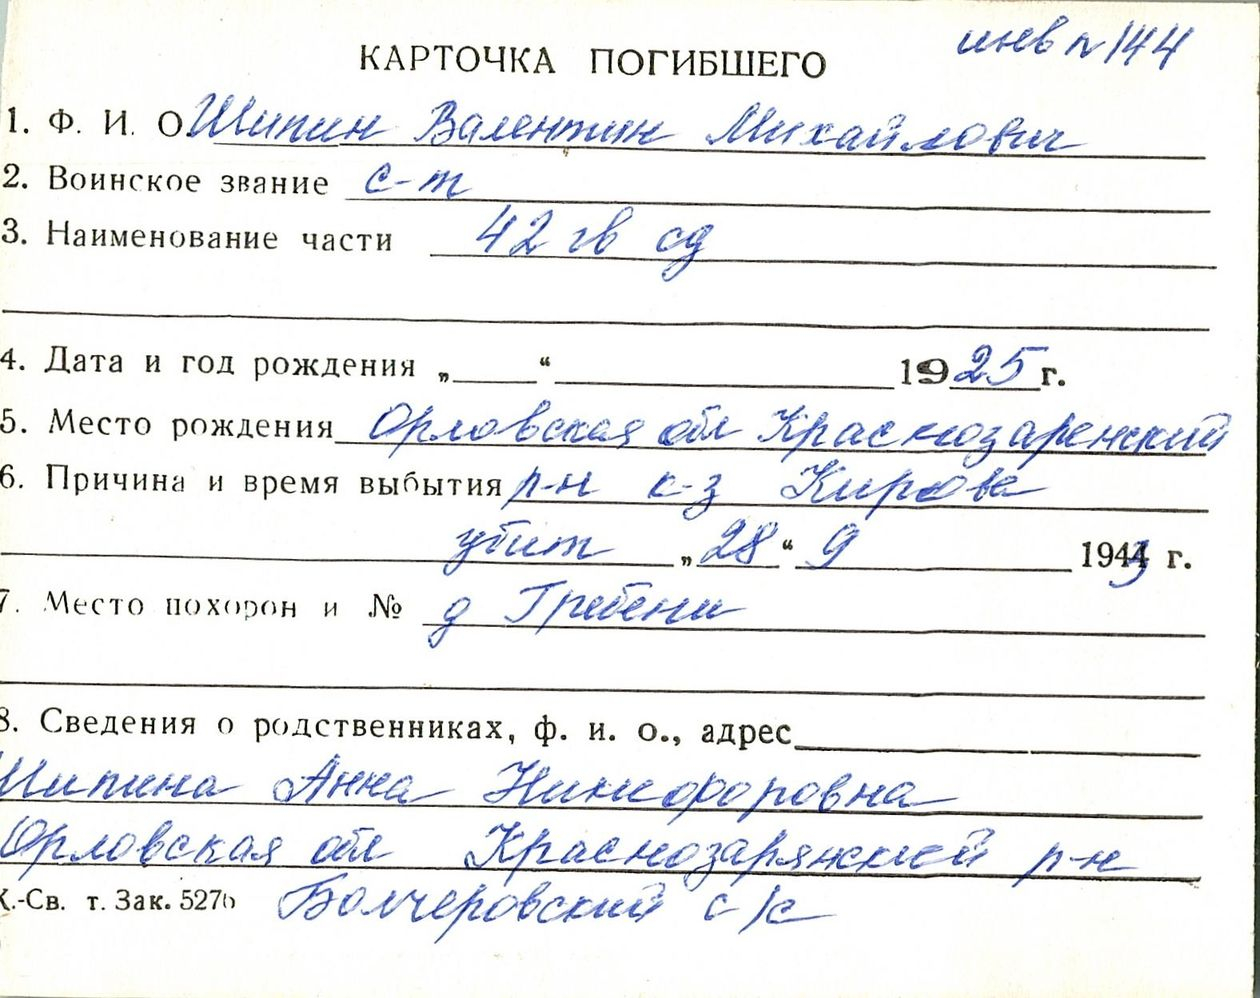 инв № 144
КАРТОЧКА ПОГИБШЕГО
1. Ф. И. О. Шипин Валентин Михайлович
2. Воинское звание с-т
3. Наименование части 42 гв сд
4. Дата и год рождения „ “ 1925 г.
5. Место рождения Орловская обл Краснозаренский
6. Причина и время выбытия р-н к-з Кирова
убит „28“ 9 1943 г.
7. Место похорон и № д Гребени
8. Сведения о родственниках, ф. и. о., адрес
Шипина Анна Никифоровна
Орловская обл Краснозарянский р-н
К.-Св. т. Зак. 5276 Болчеровский с/с